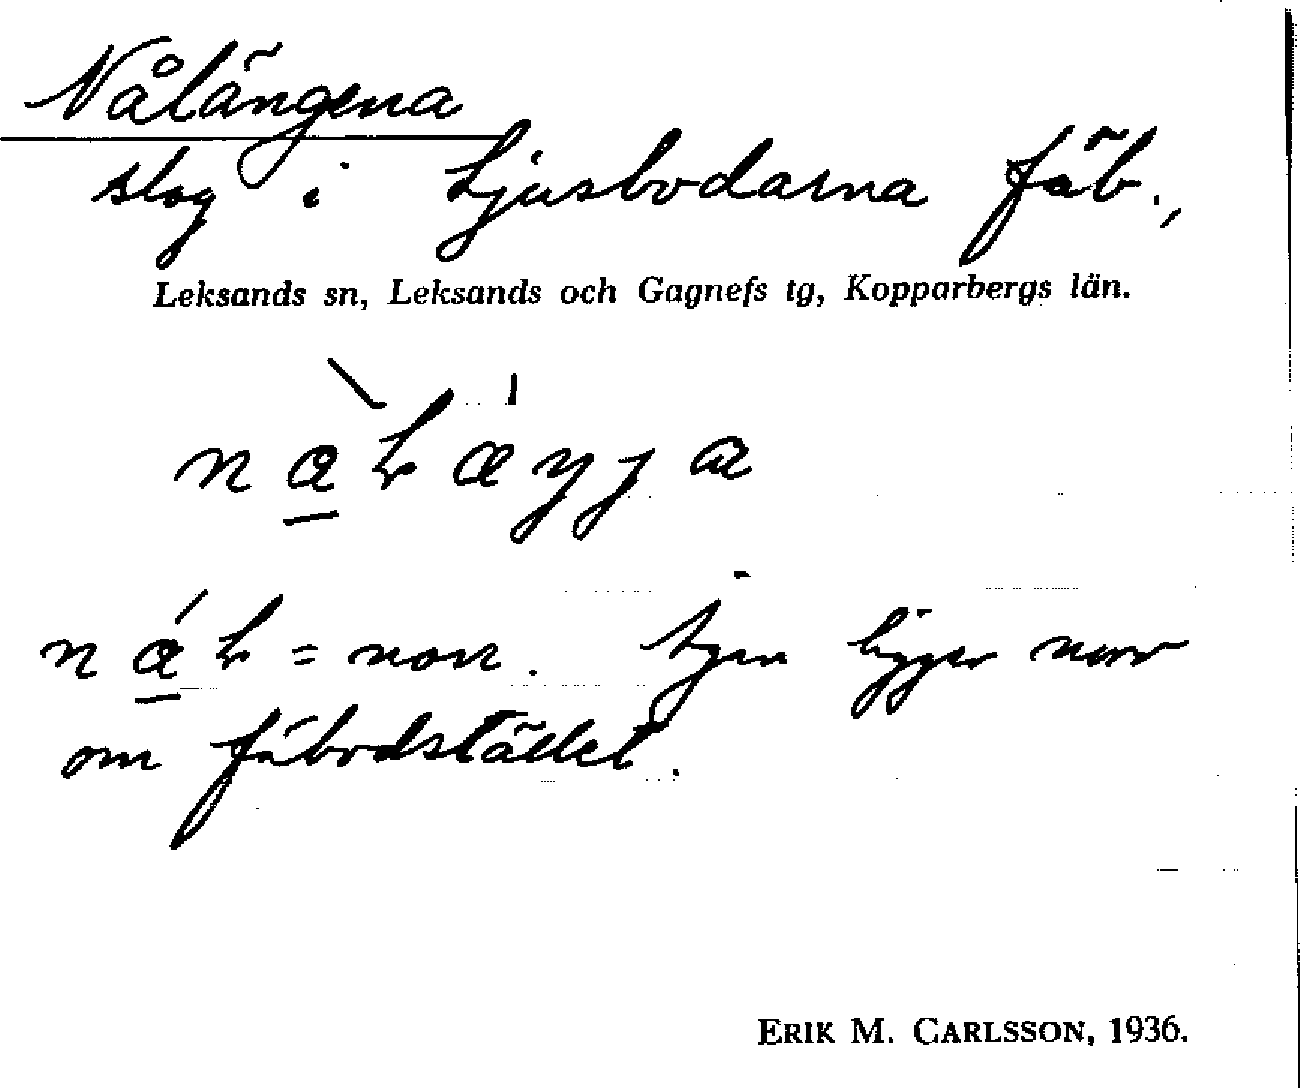 Nålängena
slog i Ljusbodarna fäb.,
Leksands sn, Leksands och Gagnefs tg, Kopparbergs län.
= norr. ligger norr
om fäbodstället.
ERIK M. CARLSSON, 1936.